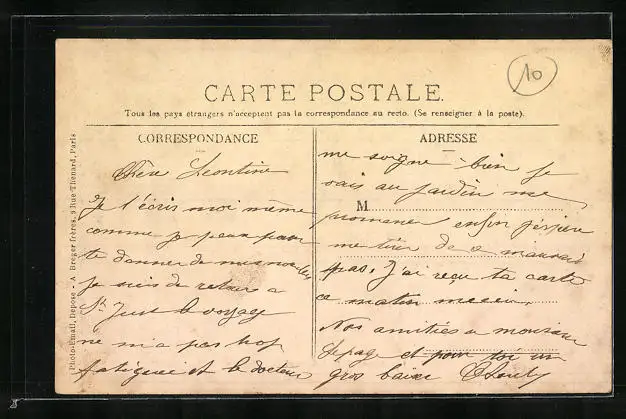 10
CARTE POSTALE.
Tous les pays étrangers n'acceptent pas la correspondance au recto. (Se renseigner à la poste).
CORRESPONDANCE
Chère Leontine
Je t'écris moi même
comme je peux pour
te donner de mes nouvelles
je suis de retour a
St Just le voyage
ne m'a pas trop
fatiguée et le docteur
ADRESSE
me soigne bien je
vais au jardin me
M
promener enfin j'espère
me tirer de ce mauvais
pas. J'ai reçu ta carte
ce matin merci.
Nos amitiés a monsieur
Lepage et pour toi un
gros baiser
Photo-Email, Déposé - A. Breger frères, 9 Rue Thénard, Paris